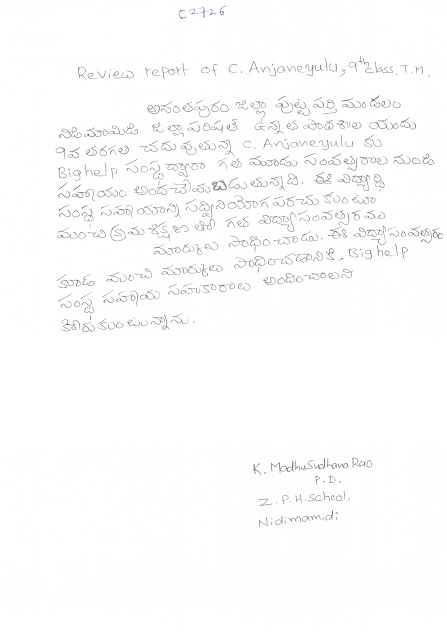 C2726
Review report of C. Anjaneyulu, 9th class, T.M.
అనంతపురం జిల్లా పుట్టపర్తి మండలం
నిడిమామిడి జిల్లా పరిషత్ ఉన్నత పాఠశాల యందు
9వ తరగతి చదువుతున్న C. Anjaneyulu కు
Bighelp సంస్థ ద్వారా గత మూడు సంవత్సరాల నుండి
సహాయం అంద చేయబడుతున్నది. ఈ విద్యార్థి
సంస్థ సహాయాన్ని సద్వినియోగ పరచు కుంటూ
మంచి క్రమశిక్షణ తో గత విద్యాసంవత్సరము
మార్కులు సాధించాడు. ఈ విద్యాసంవత్సరం
కూడ మంచి మార్కులు సాధించడానికి, Bighelp
సంస్థ సహాయ సహాకారాలు అందించాలని
కోరుకుంటున్నాను.
K. MadhuSudhana Rao
P.D.
Z.P.H.School,
Nidimamidi